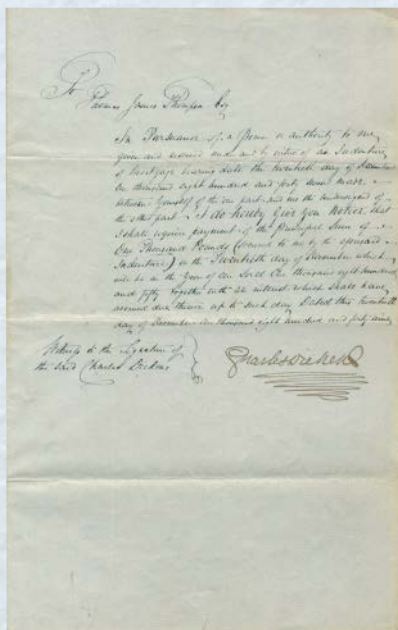 To
Thomas James Thompson Esq
In Pursuance of a Power or authority to me
given and reserved under and by virtue of an Indenture
of Mortgage bearing date the twentieth day of December
One thousand eight hundred and forty seven made
between Yourself of the one part and me the undersigned of
the other part I do hereby Give you Notice that
I shall require payment of the principal Sum of
One Thousand Pounds (secured to me by the aforesaid
Indenture) on the Twentieth day of December which
will be in the Year of our Lord One thousand eight hundred
and fifty together with all interest which shall have
accrued due thereon up to such day Dated this twentieth
day of December One thousand eight hundred and forty nine
Witness to the Signature of
the said Charles Dickens
Charles Dickens